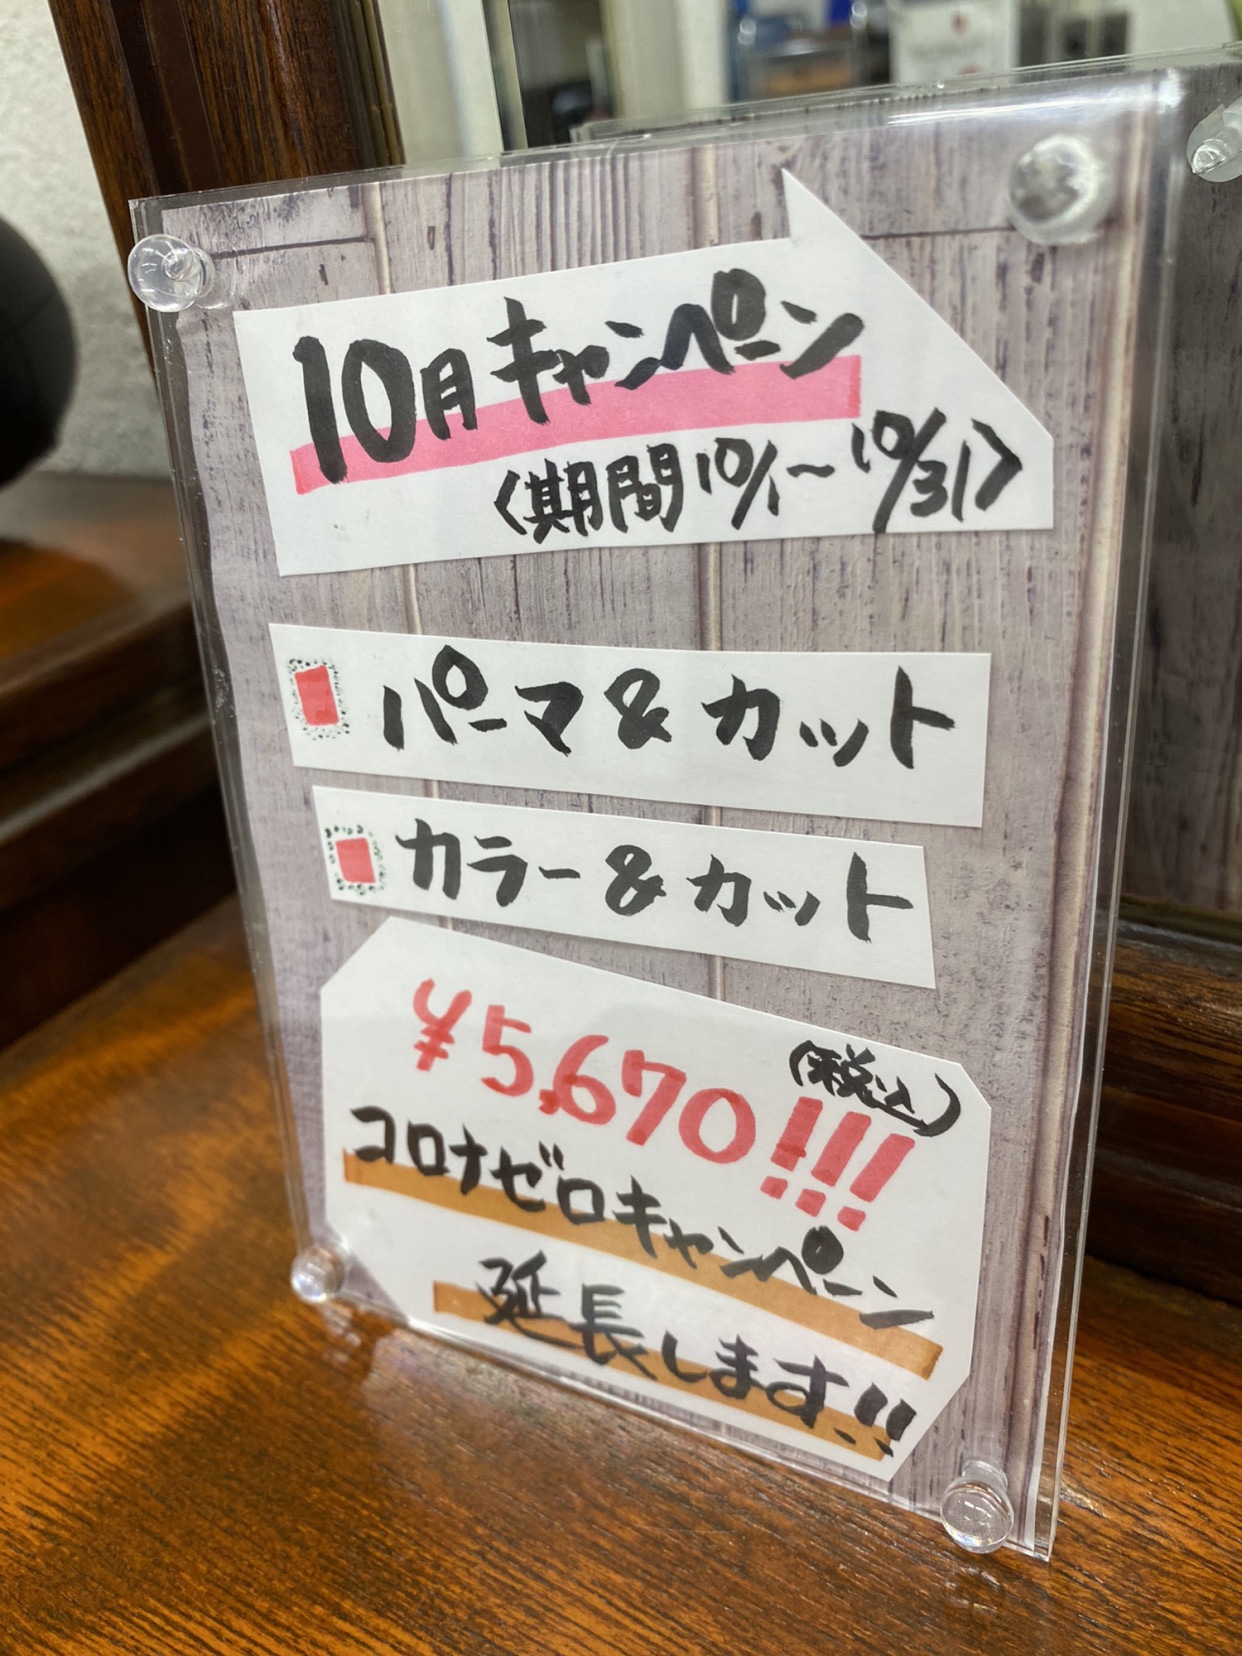 10月キャンペーン
〈期間10/1〜10/31〉
パーマ&カット
カラー&カット
¥5,670!!!(税込)
コロナゼロキャンペーン
延長します!!